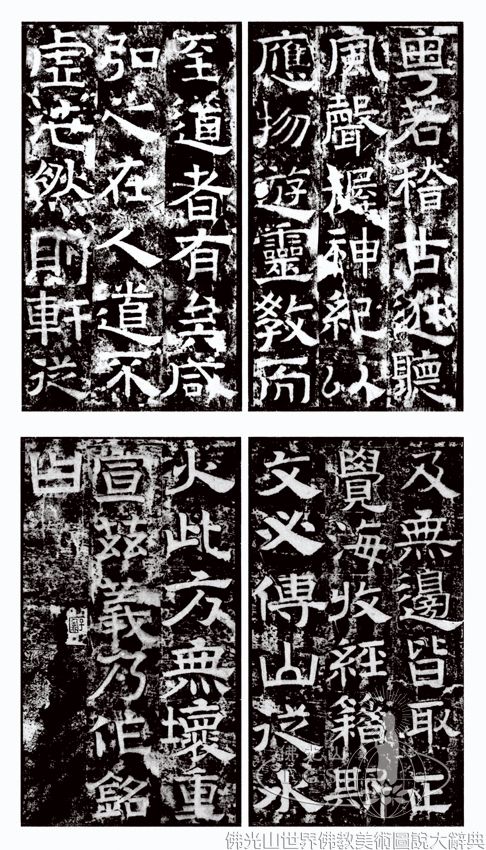 粤若稽古逖聽
風聲握神紀以
應物遊靈教而
至道者有矣咸
弘之在人道不
虛茫然則軒從
及無邊皆取正
覺海收經籍斯
文必傳山從水
火此方無壞重
宣茲義乃作銘
曰
佛光山
佛光山世界佛教美術圖說大辭典